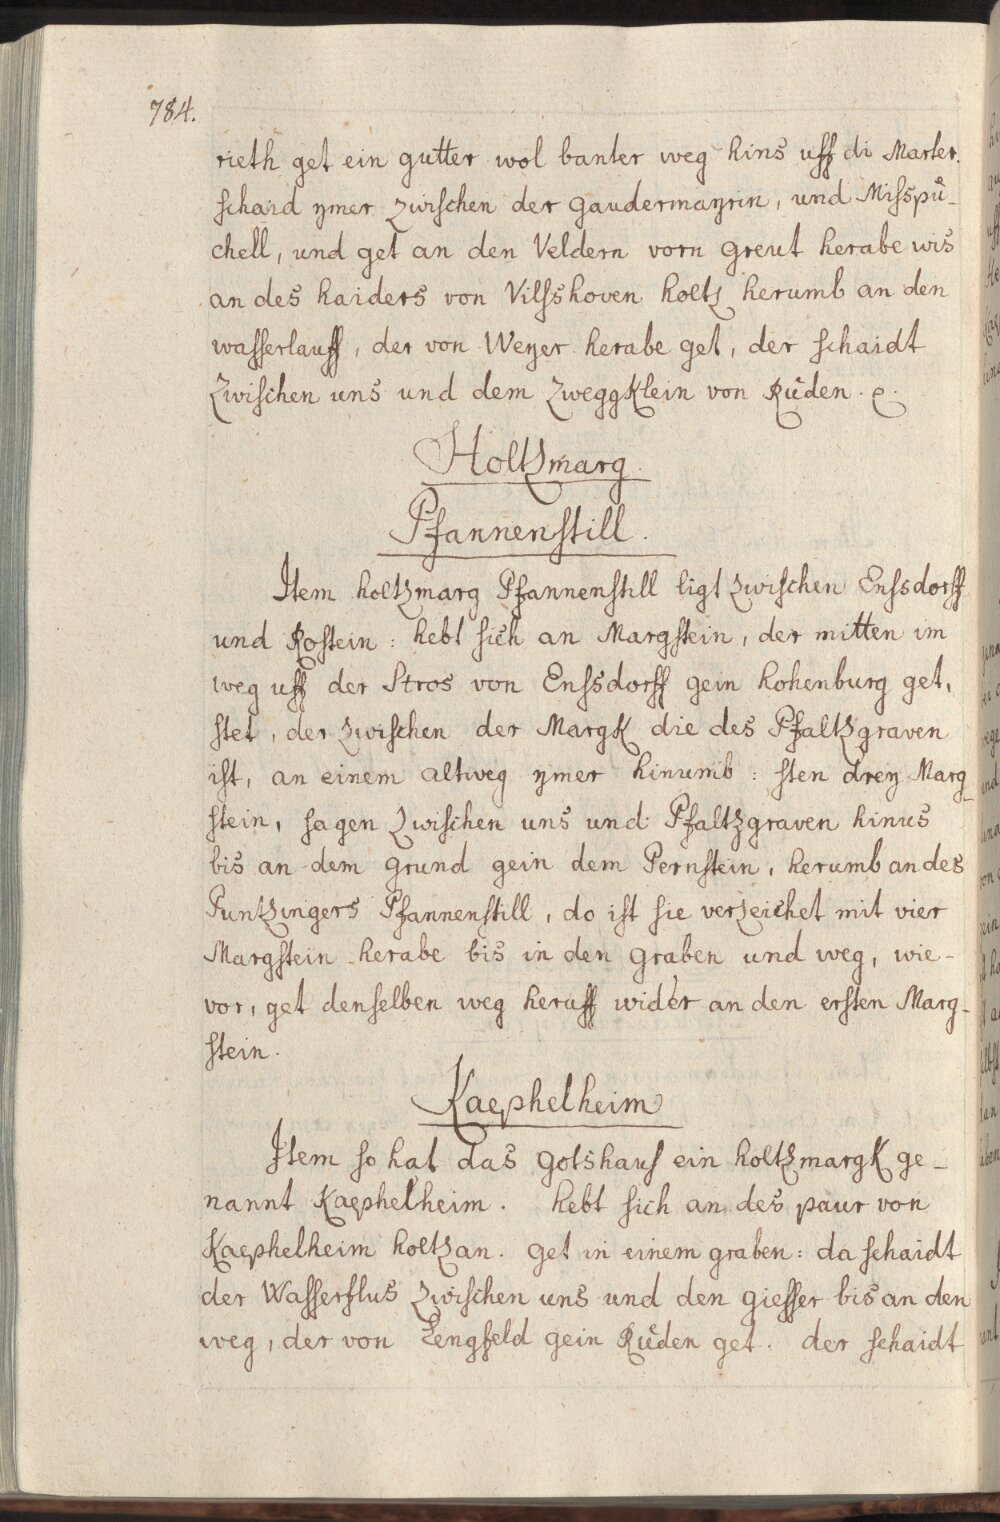 784.
rieth get ein gutter wol banter weg hins uff di Marter.
schaid ymer zwischen der gaudermayrin, und Misspů-
chell, und get an den Veldern vorn greut herabe wis
an des haiders von Vilshoven holtz herumb an den
wasserlauff, der von Weyer herabe get, der schaidt
zwischen uns und dem Zweggklein von Růden.
Holtzmarg
Pfannenstill.
Item holtzmarg Pfannenstill ligt zwischen Ensdorff
und Rostein: hebt sich an Margstein, der mitten im
weg uff der Stros von Ensdorff gein hohenburg get,
stet, der zwischen der Margk die des Pfaltzgraven
ist, an einem altweg ymer hinumb: sten drey Marg
stein, sagen zwischen uns und Pfaltzgraven hinus
bis an dem grund gein dem Pernstein, herumb an des
Puntzingers Pfannenstill, do ist sie verzeichet mit vier
Margstein herabe bis in den graben und weg, wie-
vor, get denselben weg heruff wider an den ersten Marg-
stein.
Kaephelheim
Item so hat das gotshaus ein holtzmargk ge-
nannt Kaephelheim. hebt sich an des paur von
Kaephelheim holtz an. get in einem graben: da schaidt
der Wasserflus zwischen uns und den giesser bis an den
weg, der von Lengfeld gein Růden get. der schaidt